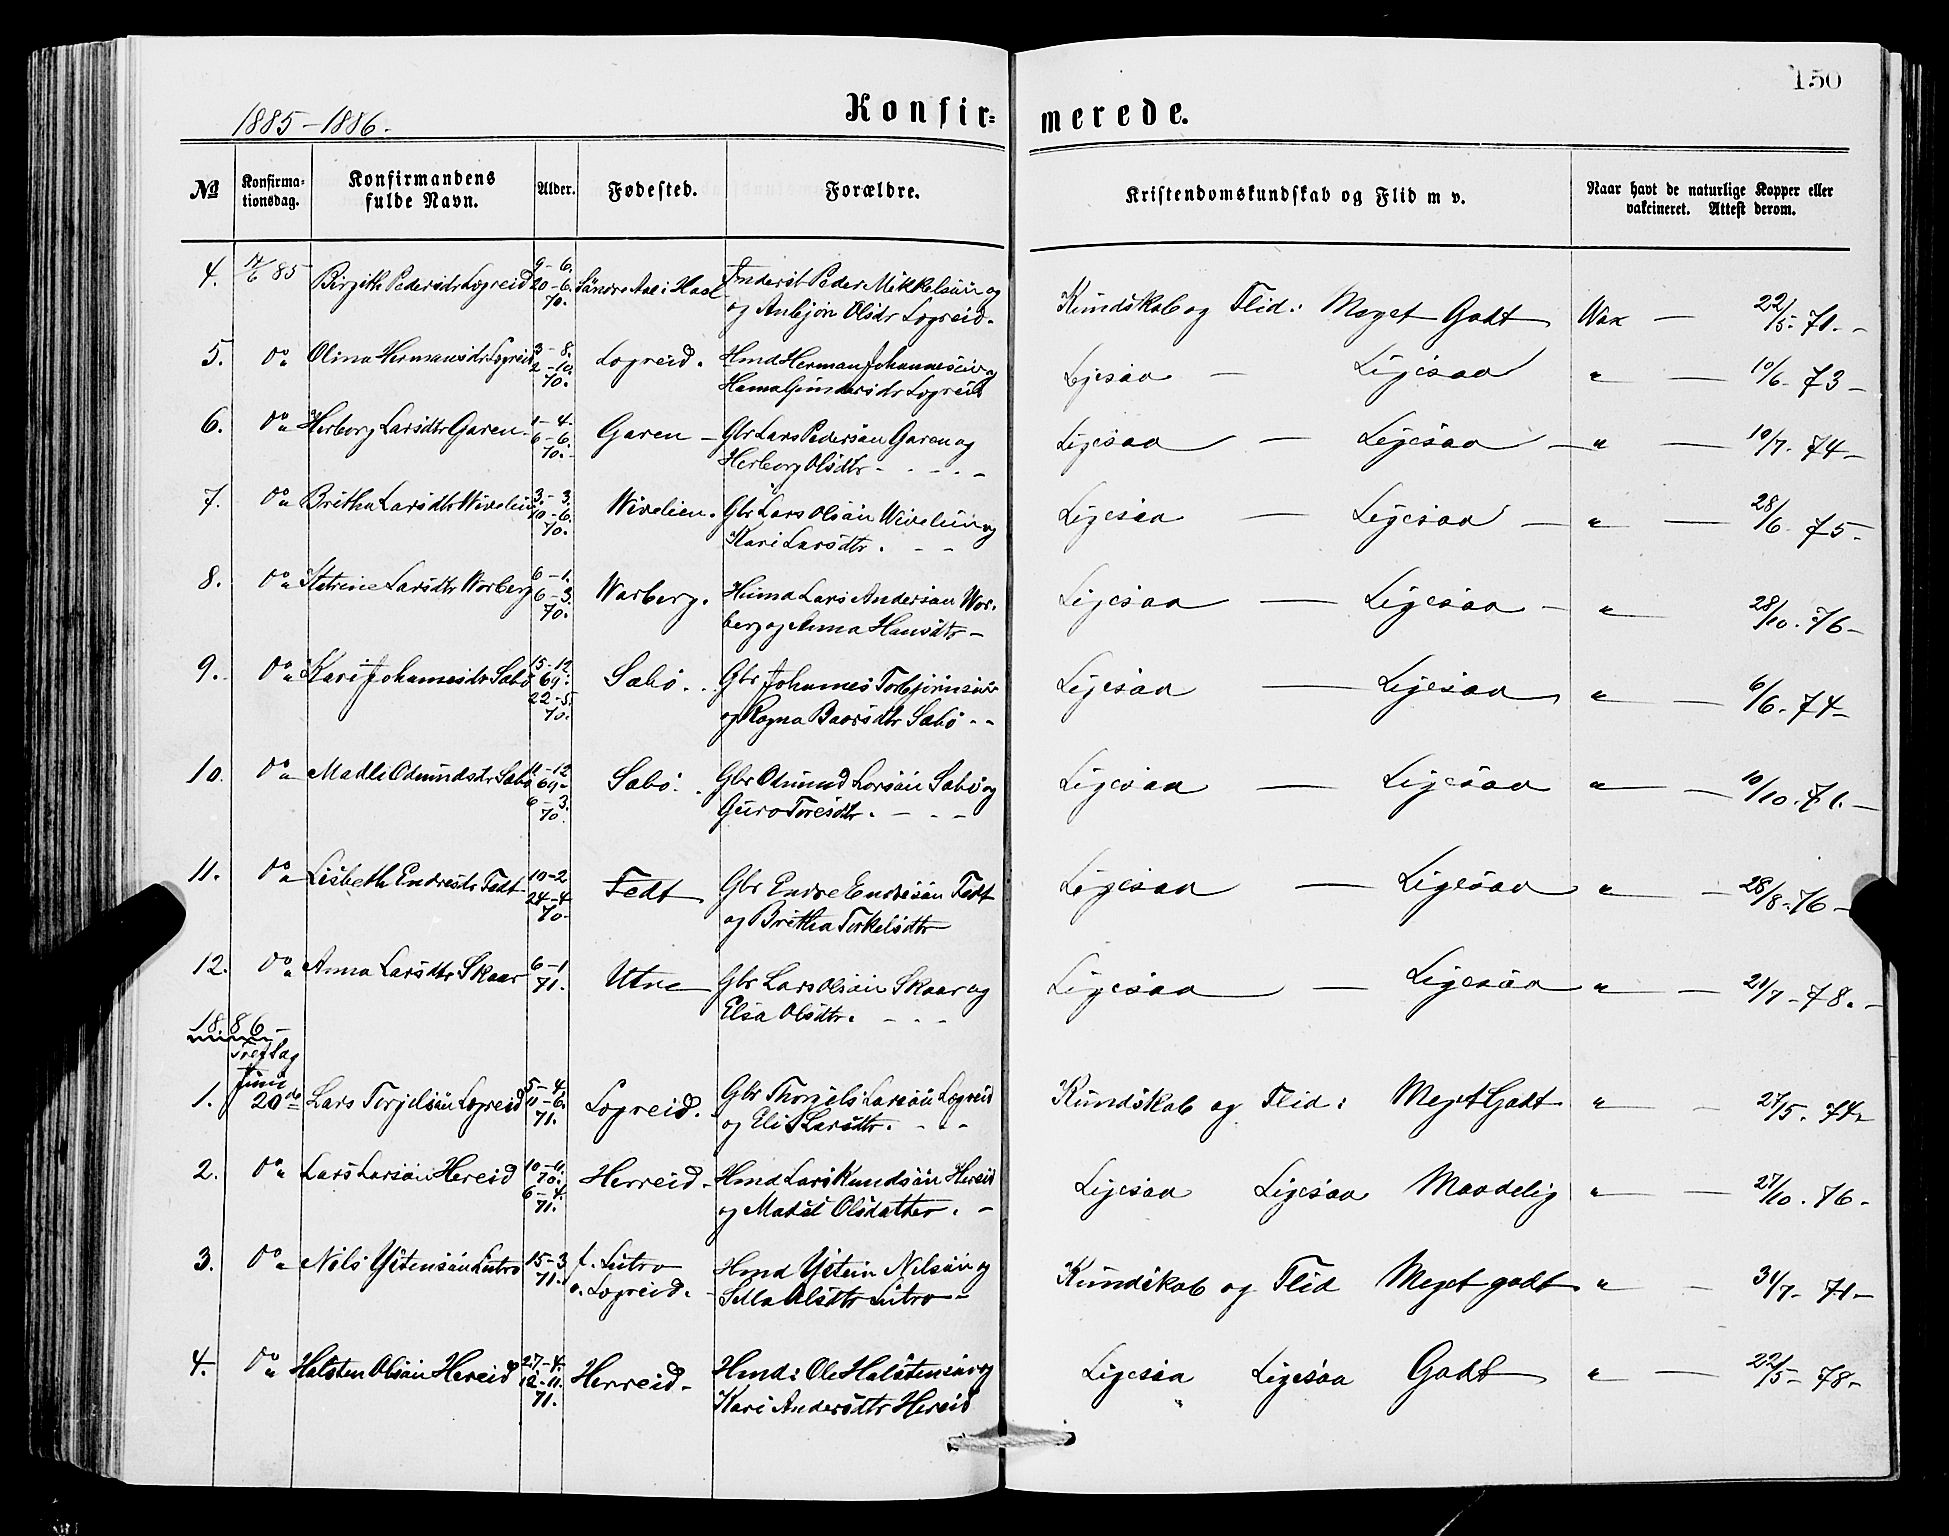 150
1885-1886.
Konfir= merede.
No Konfirma-tionsdag. Konfirmandens fulde Navn. Alder. Fødested. Forældre. Kristendomskundskab og Flid m v. Naar havt de naturlige Kopper eller vakcineret. Attest derom.
4. 85 Birgithe Pedersdr Logreid 9-6. Søndre Aal i Haal Peder Mikkelsøn og Kundskab og Flid: Meget Godt Vax 22/5. 71.-
20-6. 70. og Anbjør Olsdr Logreid.
5. Do Olina Hermansdr Logreid 3-8. Logreid. Hmd Herman Johannesøn og Ligesaa - Ligesaa " 10/6. 73-
2-10. 70. Gundersdr Logreid
6. Do Herborg Larsdtr Garen 1-4. Garen - Gbr Lars Pedersøn Garen og Ligesaa - Ligesaa - " 10/7. 74-
6-6. 70. Herborg Olsdtr - - -
7. Do Britha Larsdtr Wivelien 3-3. Wivelien. Gbr Lars Olsøn Wivelien og Ligesaa - Ligesaa - " 28/6. 75-
10-6. 70. Kari Larsdtr. - -
8. Do Katrine Larsdtr Worberg 6-1. Warberg. Huusmd Lars Andersøn Wor- Ligesaa - Ligesaa - " 28/10. 76-
6-3. 70. berg og Anna Hansdtr -
9. Do Kari Johannesdr Sabø 15-12 69. Sabø. Gbr Johannes Torbjørnsøn Ligesaa - Ligesaa " 6/6. 74-
22-5. 70. og Ragna Baarsdtr Sabø - -
10. Do Madli Odmundsdr Sabø 11-12 69- Sabø. Gbr Odmund Larsøn Sabø og Ligesaa - Ligesaa " 10/10. 71.-
6-3. 70. Guro Toresdtr. - - -
11. Do Lisbeth Endresdr Tedt 10-2 Tedt Gbr Endre Endresøn Tedt Ligesaa - Ligesaa " 28/8. 76-
24-4 70- og Britha Torkelsdtr
12. Do Anna Larsdtr Skaar 6-1 71. Utne Gbr Lars Olsøn Skaar og Ligesaa - Ligesaa " 21/7-78.-
Elsa Olsdtr. - - -
1886-
Juni
1. 20de Lars Torjelsøn Logreid 5-4. Logreid. Gbr Thorjels Larsøn Logreid Kundskab og Flid: Meget Godt " - 27/5. 74-
11-6. 71. og Eli Larsdtr. - - -
2. Do Lars Larsøn Hereid 10-11. 70. Herreid. Hmd Lars Knudsøn Hereid Ligesaa Ligesaa Maadelig " - 27/10. 76-
6-4. 71. og Madsil Olsdatter. -
3. Do Nils Ystensøn Lutro 15-3 f. Lutro Hmd Ystein Nilsøn og Kundskab og Flid Meget godt " - 31/7- 71-
71. o. Logreid. Olsdtr Lutro -
4. Do Halsten Olsøn Hereid 27-4. Herreid. Hmd: Ole Halstensøn og Ligesaa Ligesaa Godt " - 22/5- 78-
12-11. 71. Kari Andersdtr Hereid